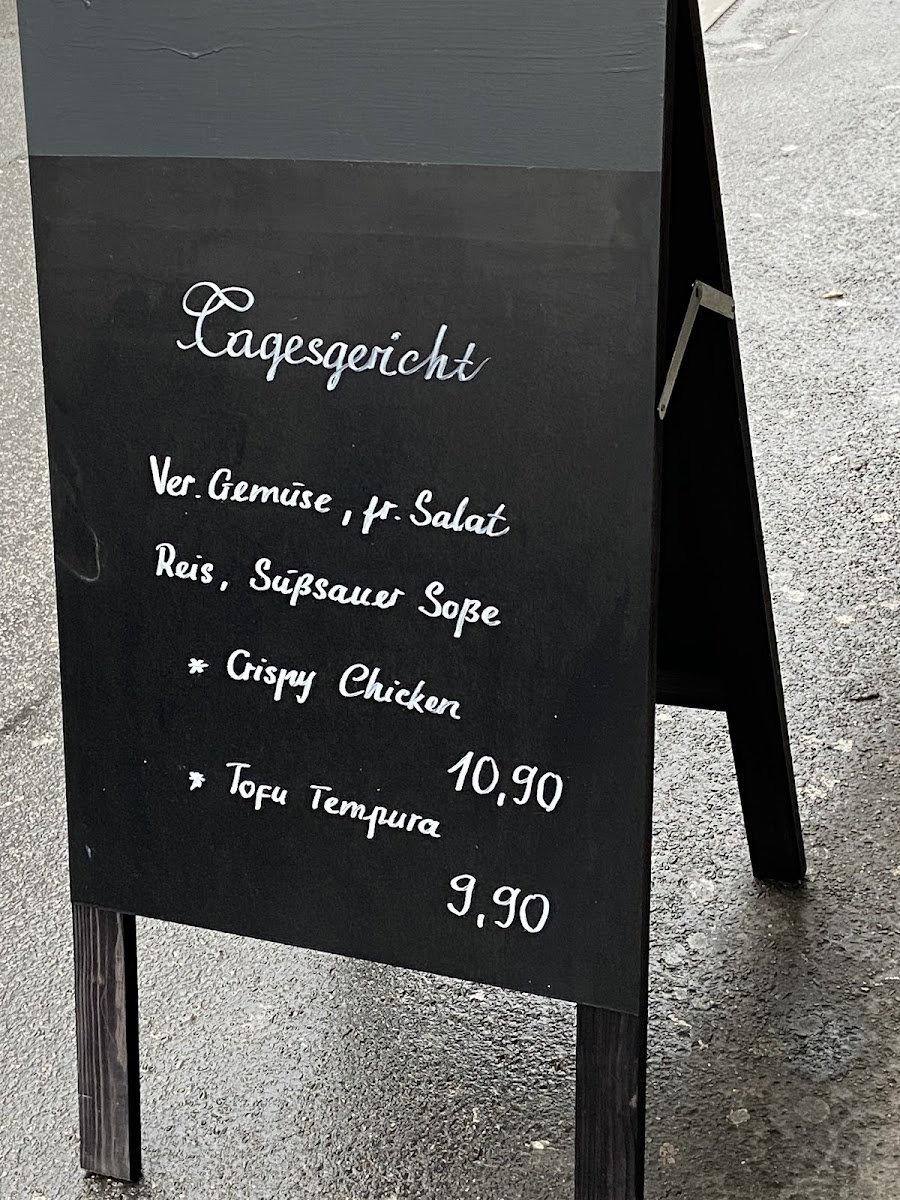 Tagesgericht
Ver. Gemüse, fr. Salat
Reis, Süßsauer Soße
* Crispy Chicken
10,90
* Tofu Tempura
9,90